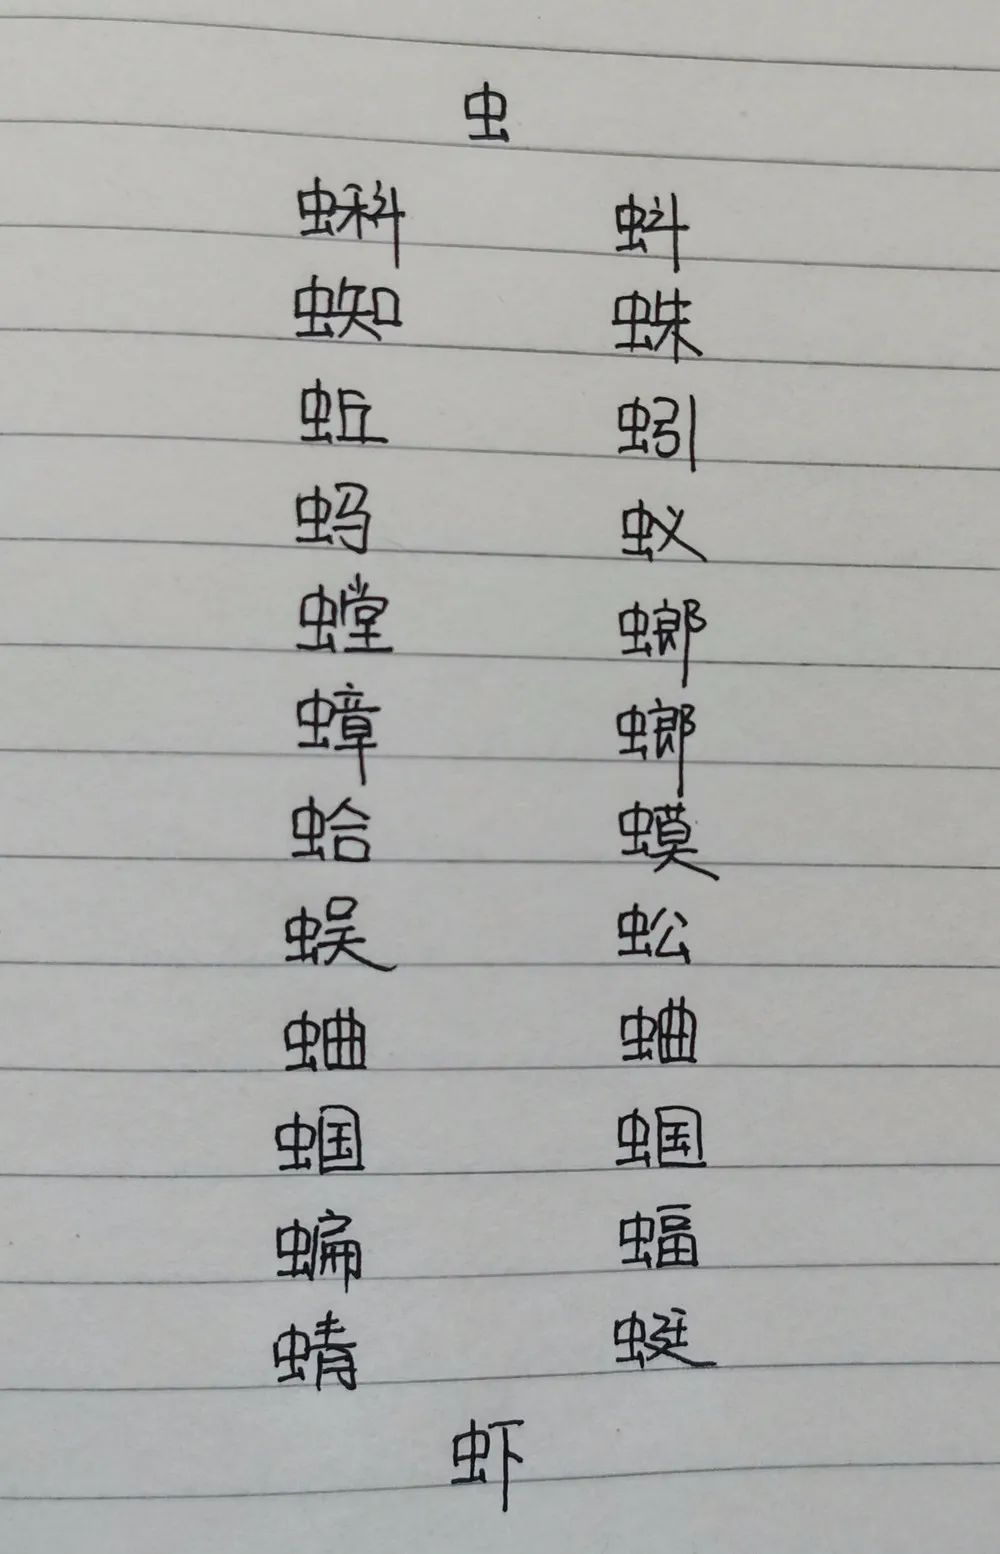 虫
蝌 蚪
蜘 蛛
蚯 蚓
蚂 蚁
螳 螂
蟑 螂
蛤 蟆
蜈 蚣
蛐 蛐
蝈 蝈
蝙 蝠
蜻 蜓
虾